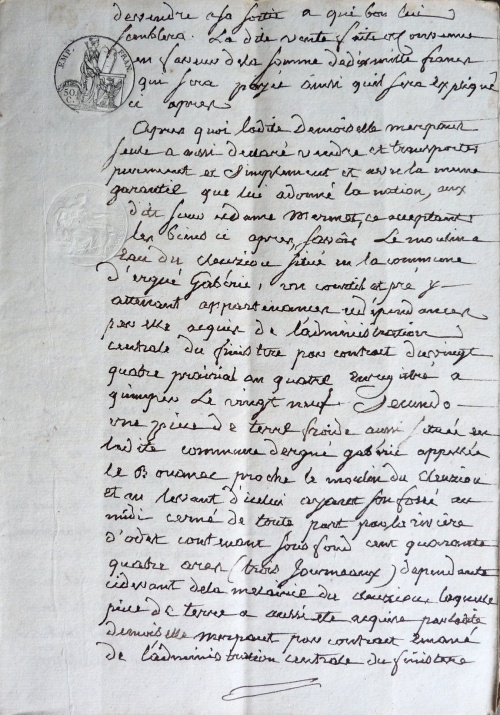 dessendre sa sortie a qui bon lui
semblera. La dite vente faite et convenue
en faveur de la somme de dix mille francs
qui sera payé ainsi quil sera expliqué
ci apres
EMP. FRAN.
50 C.
Apres quoi ladite Demoiselle merpaut
seule a aussi declaré vendre et transporter
purement et simplement et avec la meme
garantie que lui a donné la nation, aux
dits sieur et dame Mermet, ce acceptant
les biens ci apres, savoir Le moulin a
eau du cleuziou situé en la commune
d'ergué Gabéric, son courtil et pré y
attenant appartenances et dépendances
par elle acquis de l'administration
centrale du finistre par contrat du vingt
quatre prairial an quatre Enregistré a
quimper Le vingt neuf. Secundo
une piece de terre froide aussi située en
ladite commune d'ergué gabéric appellée
le Bouanec proche le moulin du Cleuziou
et au levant d'icelui ayant son fossé au
midi cerné de toute part par la rivière
d'odet contenant sous fond cent quarante
quatre ares (trois Journeaux) dependante
cidevant de la metairie du cleuziou laquelle
piece de terre a aussi eté acquise par ladite
demoiselle merpaut par contrat emané
de l'administration centrale du finistere